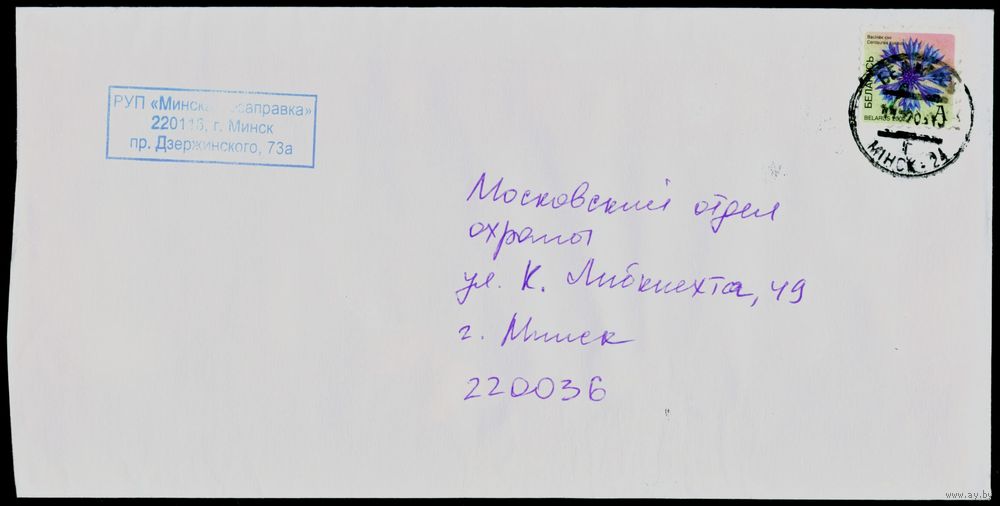 РУП «Минская
220116, г. Минск
пр. Дзержинского, 73а
Васілёк сіні
Centaurea
БЕЛАРУСЬ
A
BELARUS
МІНСК - 24
Московский отдел
охраны
ул. К. Либкнехта, 49
г. Минск
220036
www.ay.by